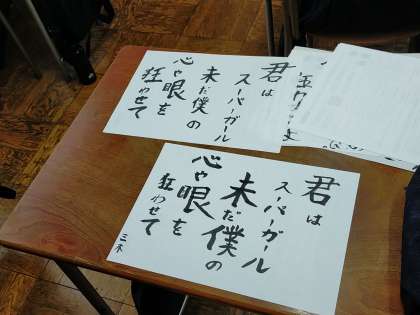 君は
スーパーガール
未だ僕の
心や眼を
狂わせて
君は
スーパーガール
未だ僕の
心や眼を
狂わせて
三木